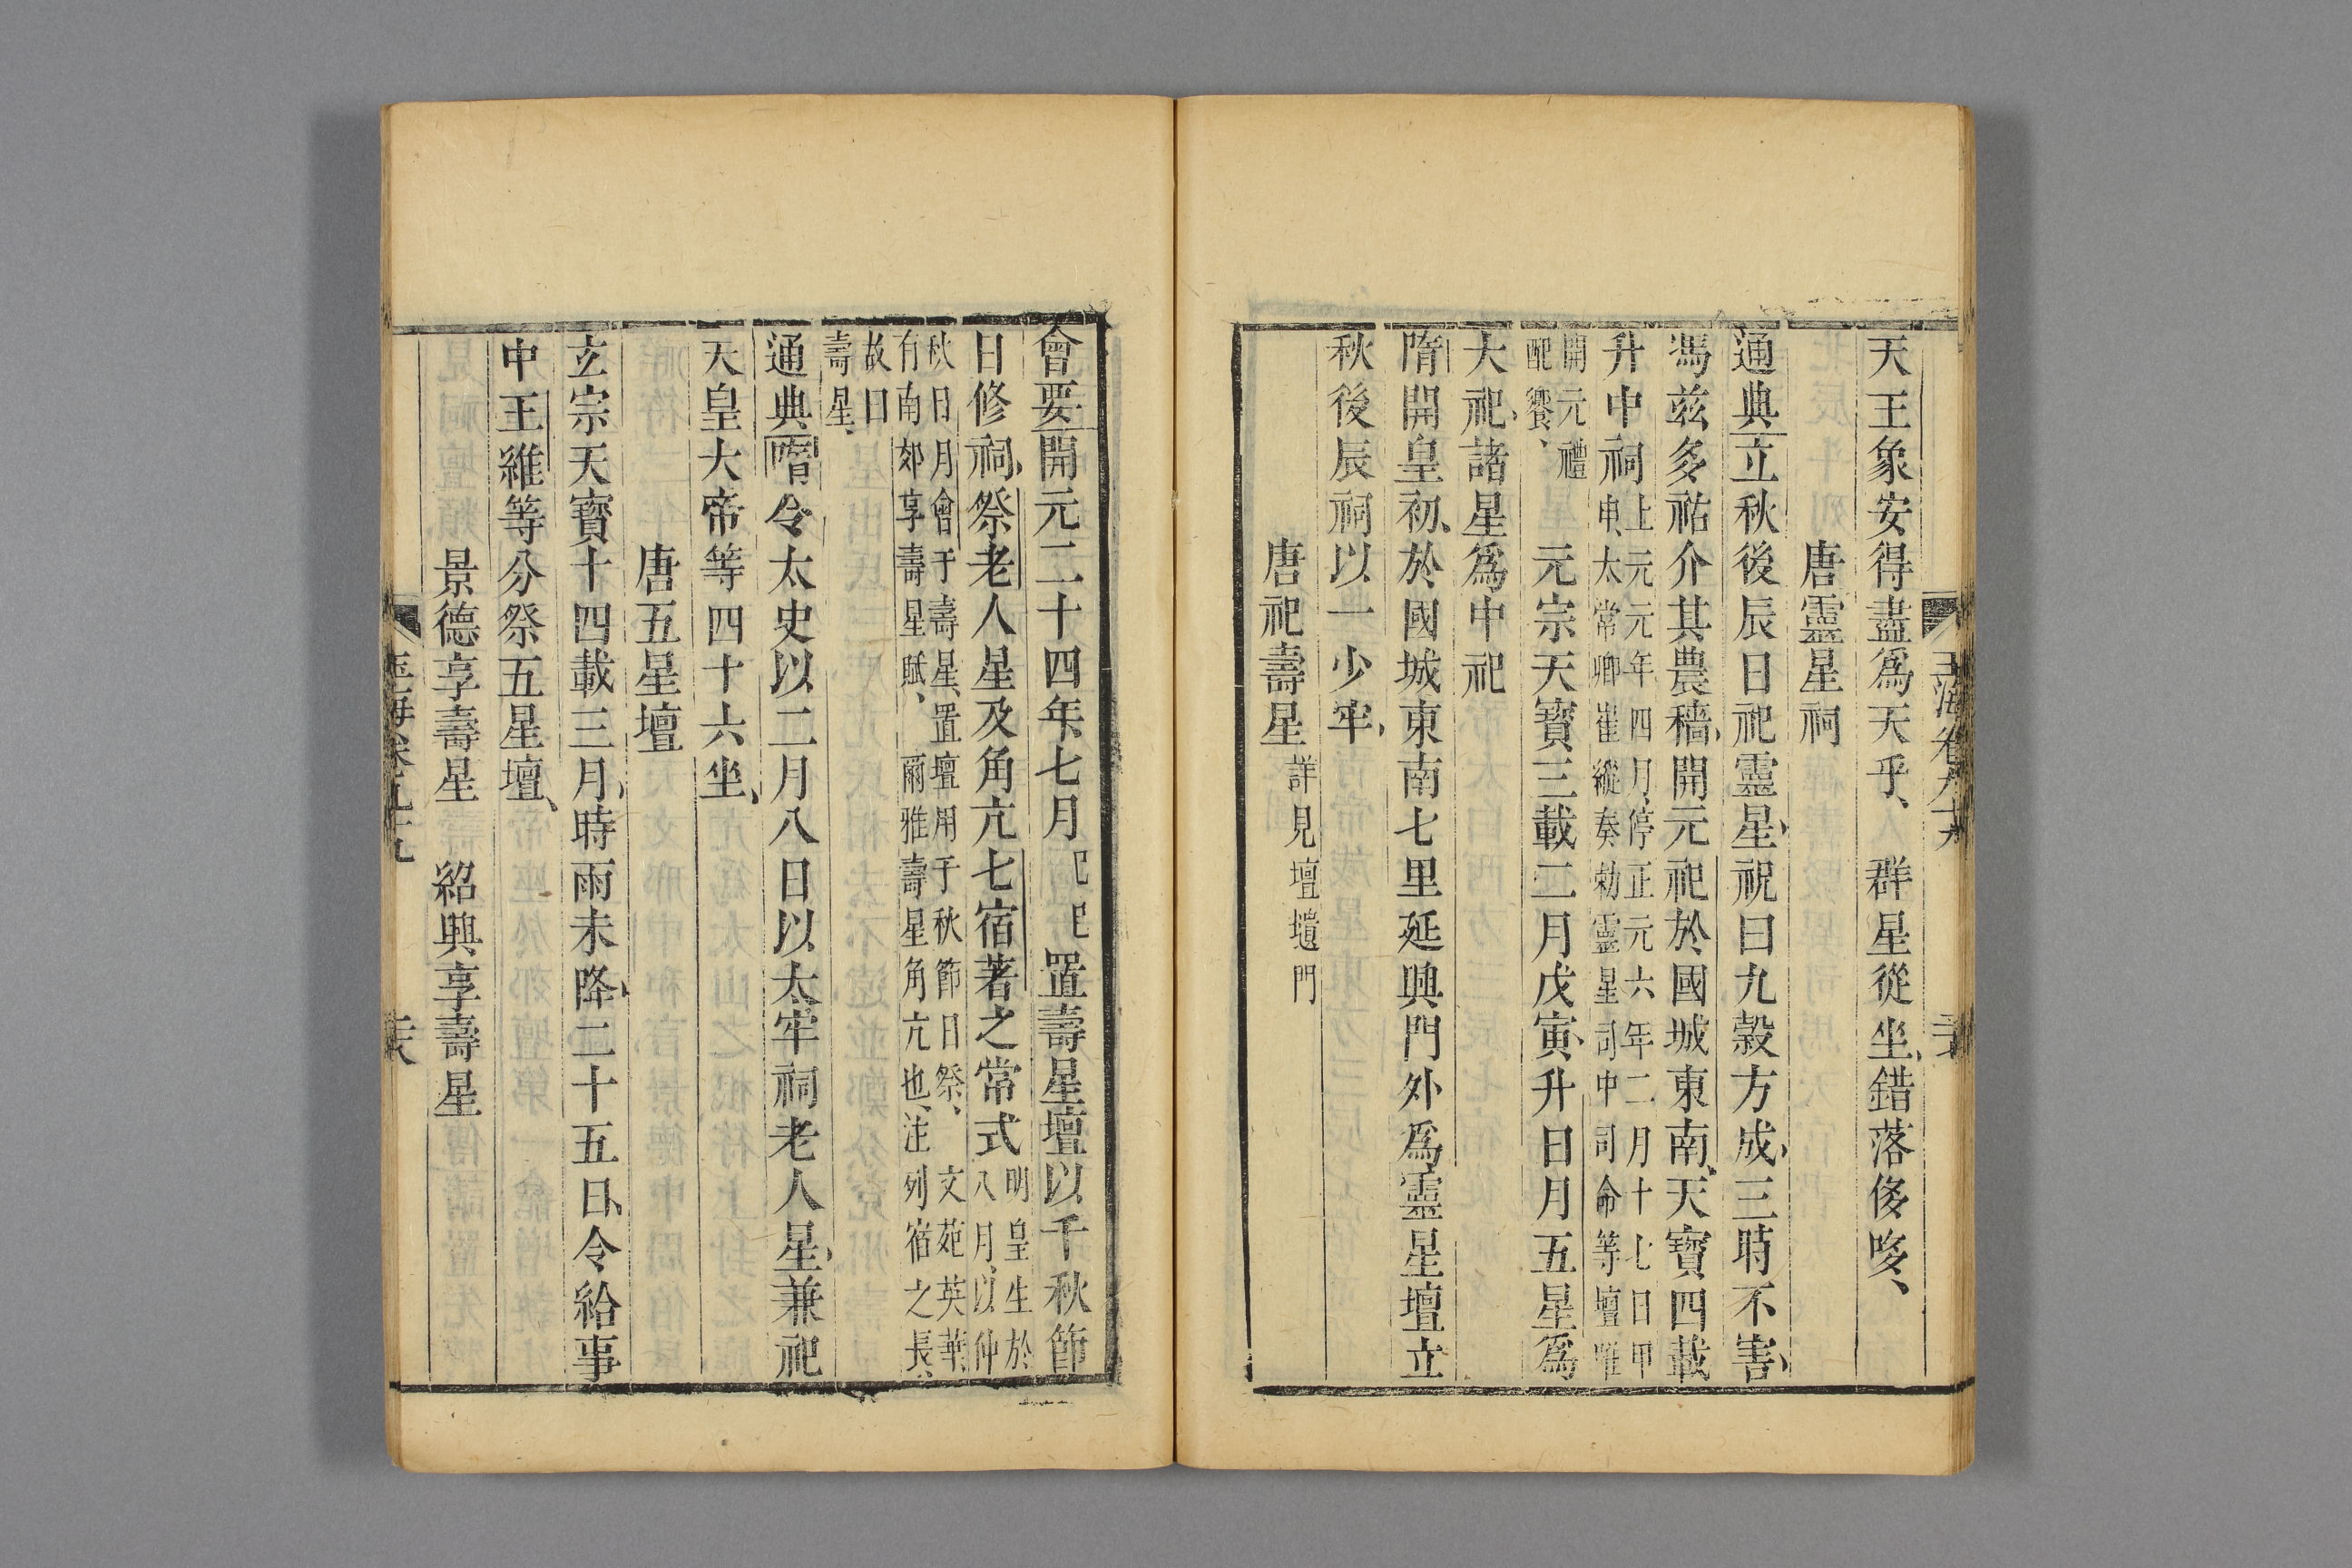 天王象安得盡爲天乎、群星從坐、錯落侈哆、
唐靈星祠
通典立秋後辰日祀靈星、祝曰九穀方成、三時不害、
馮茲多祐介其農穡、開元祀於國城東南、天寶四載
升中祠
上元元年四月、停正元六年二月十七日甲
申、太常卿崔縱奏勑靈星司中司命等壇雖
開元禮
配饗、
元宗天寶三載二月戊寅、升日月五星爲
大祀、諸星爲中祀
隋開皇初、於國城東南七里延興門外爲靈星壇立
秋後辰祠以一少牢、
唐祀壽星
詳見壇壝門
會要開元二十四年七月
己巳
置壽星壇以千秋節
日修祠、祭老人星及角亢七宿著之常式
明皇生於
八月、以仲
秋日月會于壽星、置壇用于秋節日祭、文苑英華
有南郊享壽星賦、爾雅壽星角亢也、注列宿之長、
故曰
壽星、
通典隋令太史以二月八日以太牢祠老人星、兼祀
天皇大帝等四十六坐、
唐五星壇
玄宗天寶十四載三月、時雨未降、二十五日、令給事
中王維等分祭五星壇、
景德享壽星 紹興享壽星